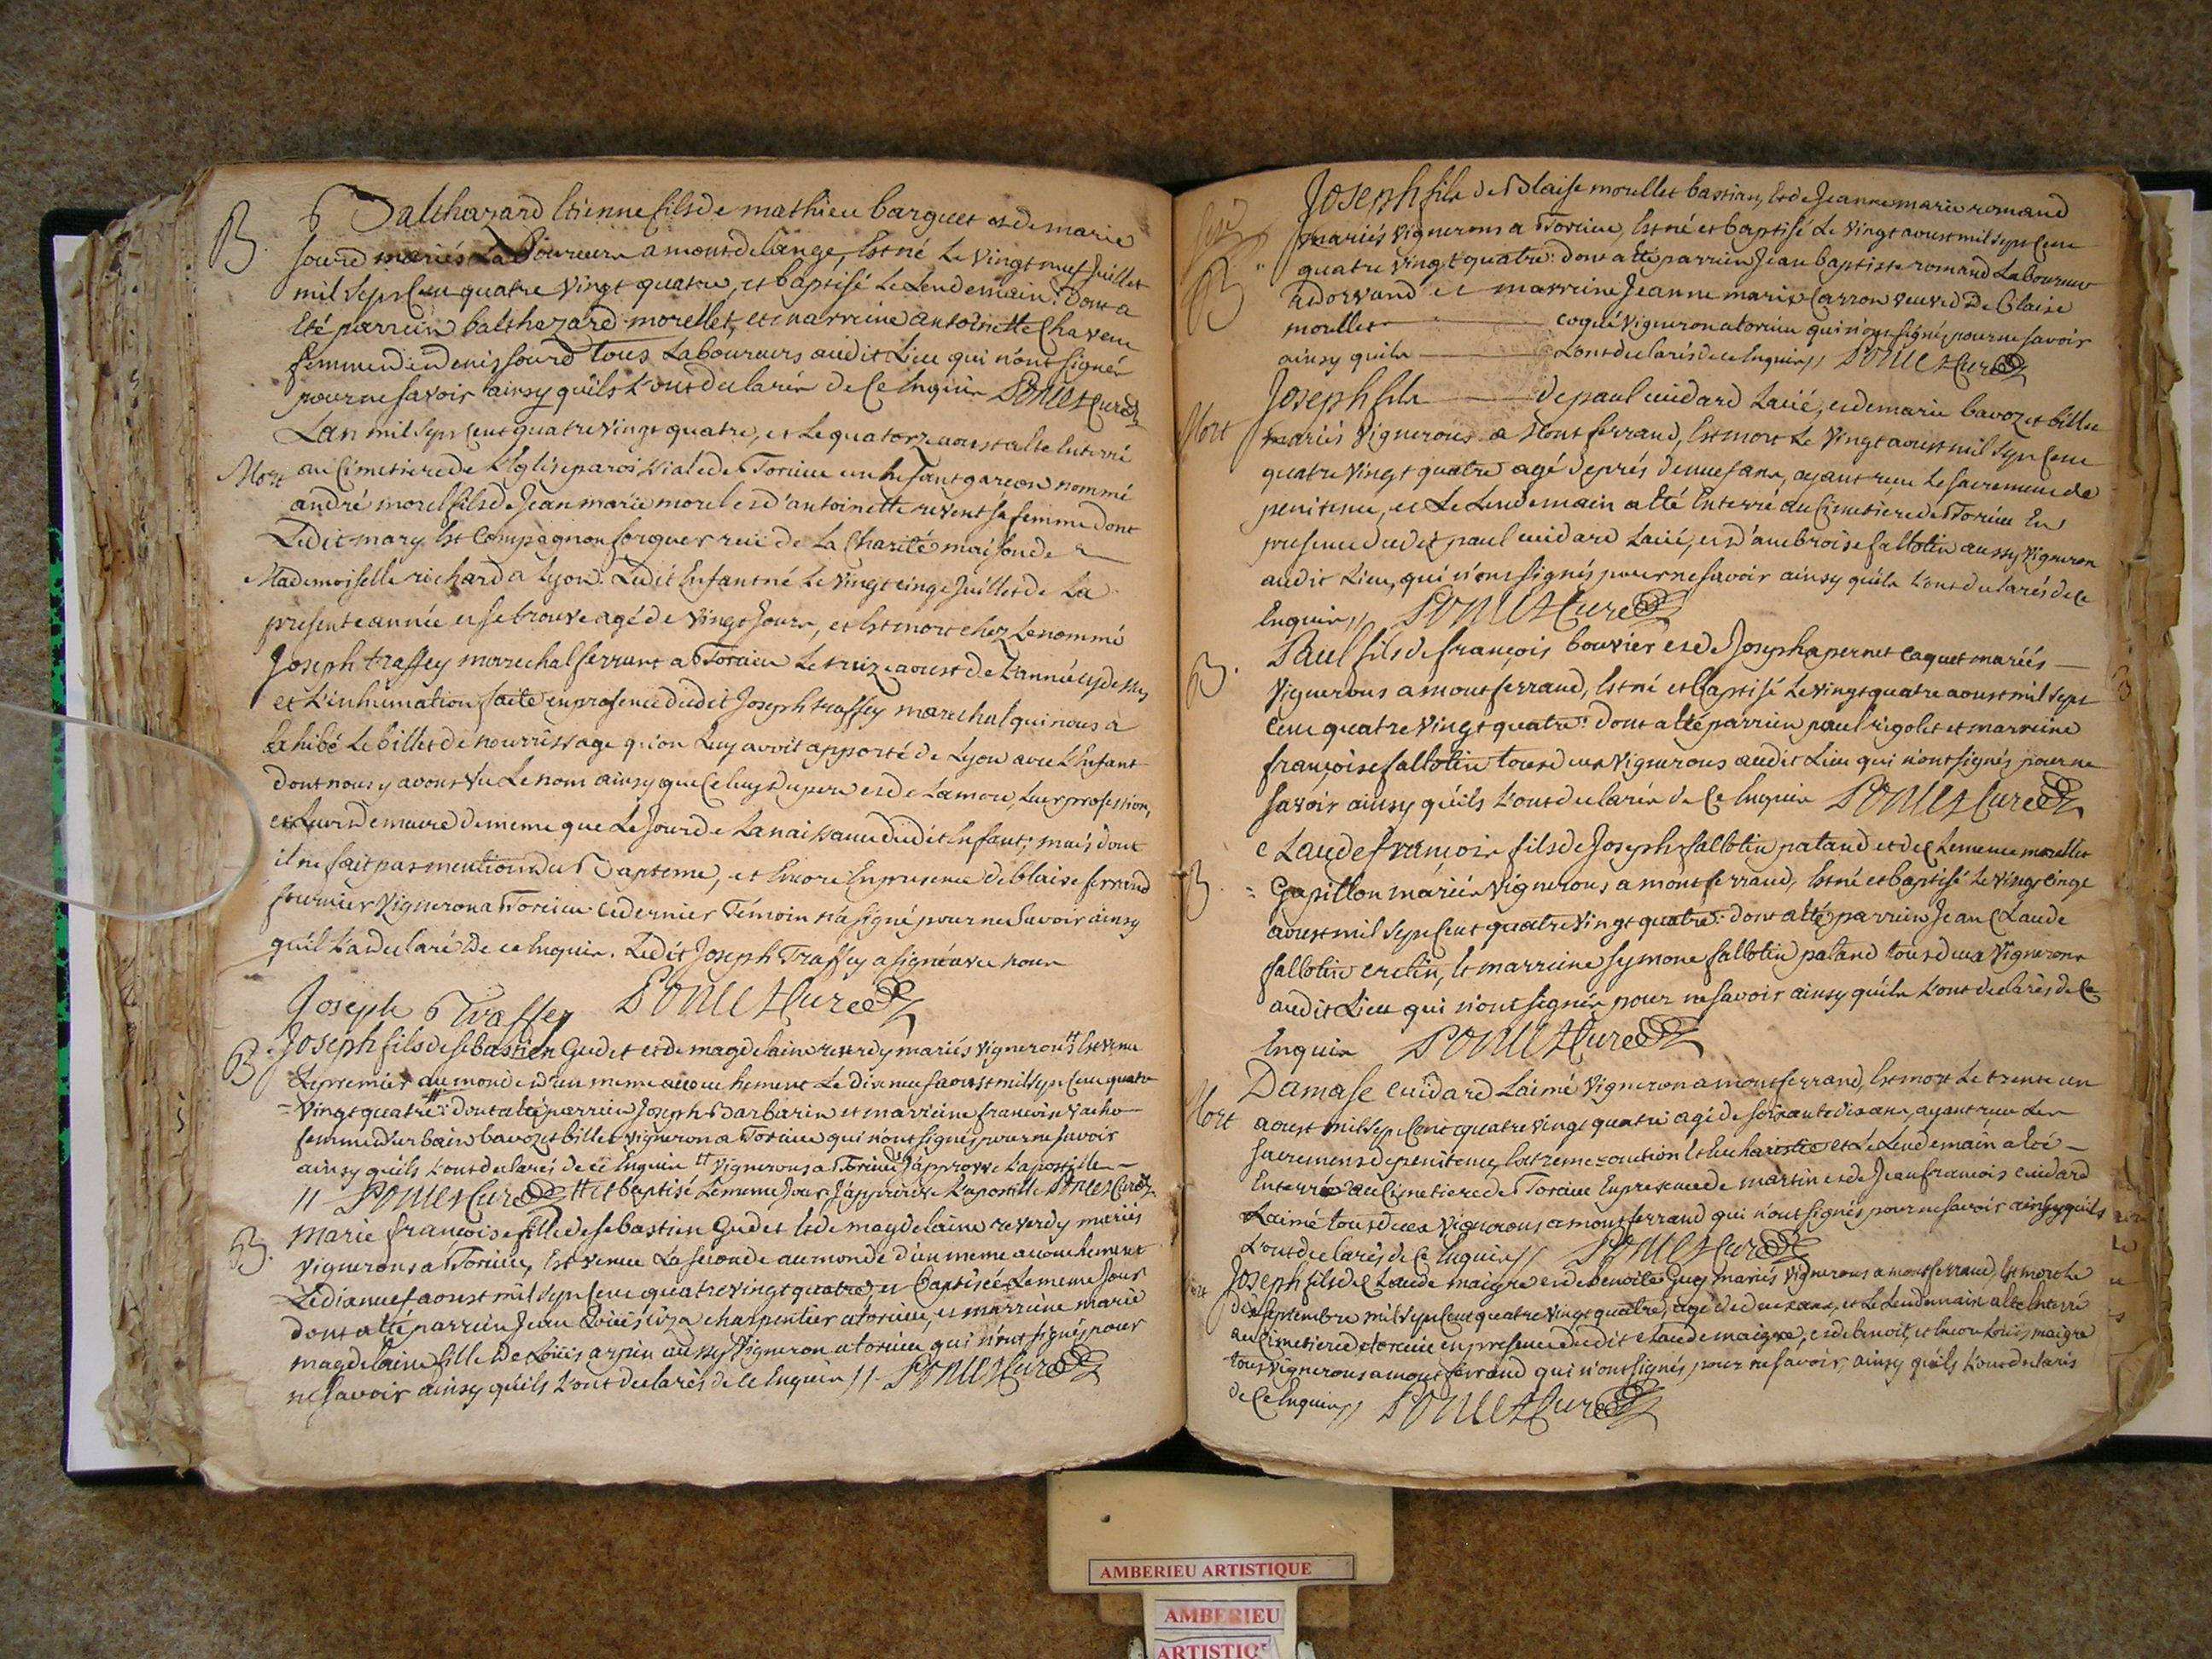 B. Balthazard Etienne fils de mathieu barquet et de marie
sourd mariés Laboureurs a montdelange, Est né Le Vingt neuf Juillet
mil Sept Cent quatre Vingt quatre, et baptisé Le Lendemain: Dont a
Eté parrein balthazard morellet, et marreine antoinette Chavent
femme de denis sourd tous Laboureurs audit Lieu qui n'ont signés
pour ne savoir ainsy quils L'ont declarés de Ce Enquis Poncet Curé
Lan mil Sept Cent quatre Vingt quatre, et Le quatorze aoust a Eté Enterré
Mort au Cimetiere de L'Eglise paroissiale de Torcieu un Enfant garçon nommé
andré morel fils de Jean marie morel et d'antoinette revent sa femme dont
Ledit mary Est Compagnon forgeur rue de La Charité maison de
Mademoiselle richard a Lyon. Ledit Enfant né Le Vingt cinq Juillet de La
presente année et se trouve agé de Vingt Jours, et Est mort chez Le nommé
Joseph traffey marechal ferrant a Torcieu Le treize aoust de L'année cy dessus
et L'inhumation faite en presence dudit Joseph traffey marechal qui nous a
Exhibé Le billet de nourrissage qu'on Luy avoit apporté de Lyon avec L'Enfant
dont nous y avons Vu Le nom ainsy que Celuy du pere et de La mere, Leur profession,
et Leur demeure de meme que Le Jour de La naissance dudit Enfant; mais dont
il ne fait pas mention du Bapteme, et Encore En presence de blaise ferrand
fournier Vigneron a Torcieu Ce dernier Témoin n'a signé pour ne savoir ainsy
qu'il L'a declaré de ce Enquis. Ledit Joseph Traffey a signé avec nous
Joseph Traffey Poncet Curé
B. Joseph fils de sebastien Gudet et de magdelaine reverdy mariés Vignerons Est Venu
Le premier au monde d'un meme accouchement Le dix neuf aoust mil Sept Cent quatre
Vingt quatre: dont a Eté parrein Joseph Barbarin et marreine françoise Vacho
femme d'urbain bavozet billet Vigneron a Torcieu qui n'ont signés pour ne savoir
ainsy qu'ils L'ont declarés de ce Enquis Vignerons a Torcieu J'approuve L'apostille
Poncet Curé et baptisé Le meme Jour J'approuve L'apostille Poncet Curé
B. Marie françoise fille de sebastien Gudet Et de magdelaine reverdy mariés
Vignerons a Torcieu, Est Venue La seconde au monde d'un meme accouchement
Le dix neuf aoust mil Sept Cent quatre Vingt quatre, et baptisée Le meme Jour
dont a Eté parrein Jean charpentier a torcieu, et marreine marie
magdelaine fille de Loüis arpin aussy Vigneron a torcieu qui n'ont signés pour
ne savoir ainsy qu'ils L'ont declarés de Ce Enquis Poncet Curé
Joseph fils de Blaise morellet bastian, Et de Jeanne marie romand
mariés Vignerons a Torcieu, Est né et baptisé Le Vingt aoust mil Sept Cent
B quatre Vingt quatre: dont a Eté parrein Jean baptiste romand Laboureur
a dorvand et marreine Jeanne marie Carron veuve De blaise
morellet coqué Vigneron a torcieu qui n'ont signés pour ne savoir
ainsy quils L'ont declarés de ce Enquis Poncet Curé
Joseph fils de paul cuidard Lainé, et de marie bavozet billet
Mort mariés Vignerons a Montferrand, Est mort Le Vingt aoust mil Sept Cent
quatre Vingt quatre agé d'eprés de neuf ans, ayant reçu Le sacrement de
penitence, et Le Lendemain a Eté Enterré au Cimetiere de Torcieu En
presence dudit paul cuidard Lainé, et d'ambroise fallotin aussy Vigneron
audit Lieu, qui n'ont signés pour ne savoir ainsy quils L'ont declarés de Ce
Enquis Poncet Curé
B. Paul fils de françois bouvier et de Josepha pernet caquet mariés
Vignerons a montferrand, Est né et baptisé Le Vingt quatre aoust mil Sept
Cent quatre Vingt quatre: dont a Eté parrein paul rigolet et marreine
françoise fallotin tous deux Vignerons audit Lieu qui n'ont signés pour ne
savoir ainsy qu'ils L'ont declarés de Ce Enquis Poncet Curé
Claude françois fils de Joseph fallotin pataud et de Clemence morellet
B. Gapillon mariés Vignerons a montferrand, Est né et baptisé Le Vingt Cinq
aoust mil Sept Cent quatre Vingt quatre: dont a Eté parrein Jean Claude
fallotin cretin, Et marreine symone fallotin pataud tous deux Vignerons
audit Lieu qui n'ont signés pour ne savoir ainsy quils L'ont declarés de Ce
Enquis Poncet Curé
Damase cuidard Laimé Vigneron a montferrand, Est mort Le trente un
Mort aoust mil Sept Cent quatre Vingt quatre agé de soixante dix ans, ayant reçu Les
sacremens de penitence, Extreme-onction Et Eucharistie et Le Lendemain a Eté
Enterré au Cimetiere de Torcieu En presence de martin et de Jean françois cuidard
Laimé tous deux Vignerons a montferrand qui n'ont signés pour ne savoir ainsy quils
L'ont declarés de Ce Enquis Poncet Curé
Joseph fils de Claude maigre et de benoite Guy mariés Vignerons a montferrand, Est mort Le
septembre mil Sept Cent quatre Vingt quatre, agé de deux ans, et Le Lendemain a Eté Enterré
au Cimetiere de torcieu en presence dudit Claude maigre, et de benoit, et Encore Loüis maigre
tous Vignerons a montferrand qui n'ont signés pour ne savoir, ainsy qu'ils L'ont declarés
de Ce Enquis Poncet Curé
AMBERIEU ARTISTIQUE
AMBERIEU
ARTISTIQ